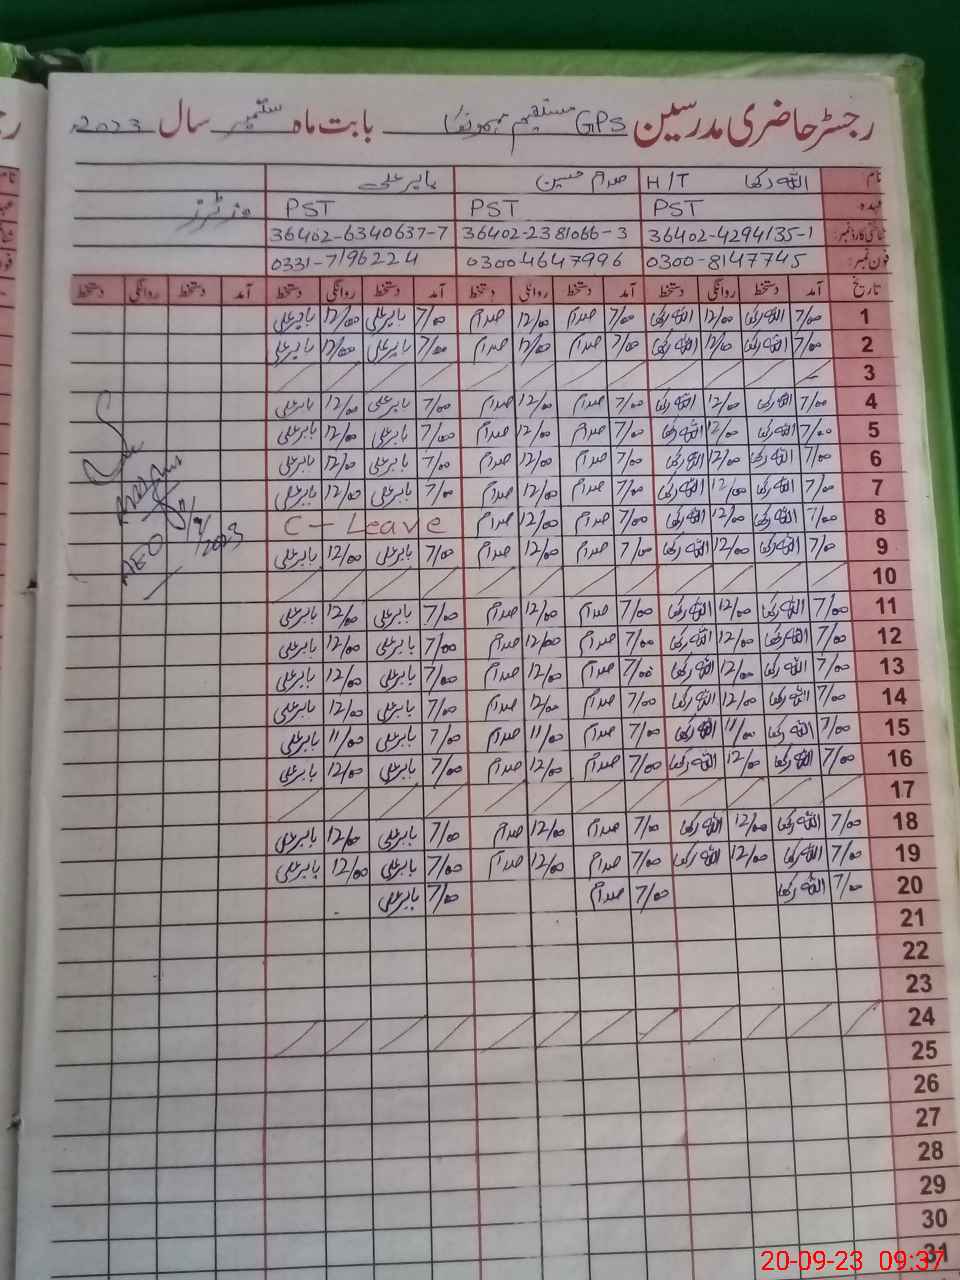 رجسٹر حاضری مدرسین GPS مستقیم بابت ماہ ستمبر سال 2023ء
نام اللہ رکھا H/T صدام حسین بابر علی
عہدہ PST PST PST وزٹرز
شناختی کارڈ نمبر: 36402-4294135-1 36402-2381066-3 36402-6340637-7
فون نمبر: 0300-8147745 03004647996 0331-7196224
تاریخ آمد دستخط روانگی دستخط آمد دستخط روانگی دستخط آمد دستخط روانگی دستخط آمد دستخط روانگی دستخط
1 7/00 اللہ رکھا 12/00 اللہ رکھا 7/00 صدام 12/00 صدام 7/00 بابر علی 12/00 بابر علی
2 7/00 اللہ رکھا 12/00 اللہ رکھا 7/00 صدام 12/00 صدام 7/00 بابر علی 12/00 بابر علی
3
4 7/00 اللہ رکھا 12/00 اللہ رکھا 7/00 صدام 12/00 صدام 7/00 بابر علی 12/00 بابر علی
5 7/00 اللہ رکھا 12/00 اللہ رکھا 7/00 صدام 12/00 صدام 7/00 بابر علی 12/00 بابر علی
6 7/00 اللہ رکھا 12/00 اللہ رکھا 7/00 صدام 12/00 صدام 7/00 بابر علی 12/00 بابر علی
7 7/00 اللہ رکھا 12/00 اللہ رکھا 7/00 صدام 12/00 صدام 7/00 بابر علی 12/00 بابر علی
8 7/00 اللہ رکھا 12/00 اللہ رکھا 7/00 صدام 12/00 صدام C - Leave
9 7/00 اللہ رکھا 12/00 اللہ رکھا 7/00 صدام 12/00 صدام 7/00 بابر علی 12/00 بابر علی
AEO
10
11 7/00 اللہ رکھا 12/00 اللہ رکھا 7/00 صدام 12/00 صدام 7/00 بابر علی 12/00 بابر علی
12 7/00 اللہ رکھا 12/00 اللہ رکھا 7/00 صدام 12/00 صدام 7/00 بابر علی 12/00 بابر علی
13 7/00 اللہ رکھا 12/00 اللہ رکھا 7/00 صدام 12/00 صدام 7/00 بابر علی 12/00 بابر علی
14 7/00 اللہ رکھا 12/00 اللہ رکھا 7/00 صدام 12/00 صدام 7/00 بابر علی 12/00 بابر علی
15 7/00 اللہ رکھا 11/00 اللہ رکھا 7/00 صدام 11/00 صدام 7/00 بابر علی 11/00 بابر علی
16 7/00 اللہ رکھا 12/00 اللہ رکھا 7/00 صدام 12/00 صدام 7/00 بابر علی 12/00 بابر علی
17
18 7/00 اللہ رکھا 12/00 اللہ رکھا 7/00 صدام 12/00 صدام 7/00 بابر علی 12/00 بابر علی
19 7/00 اللہ رکھا 12/00 اللہ رکھا 7/00 صدام 12/00 صدام 7/00 بابر علی 12/00 بابر علی
20 7/00 اللہ رکھا 7/00 صدام 7/00 بابر علی
21
22
23
24
25
26
27
28
29
30
31
20-09-23 09:37